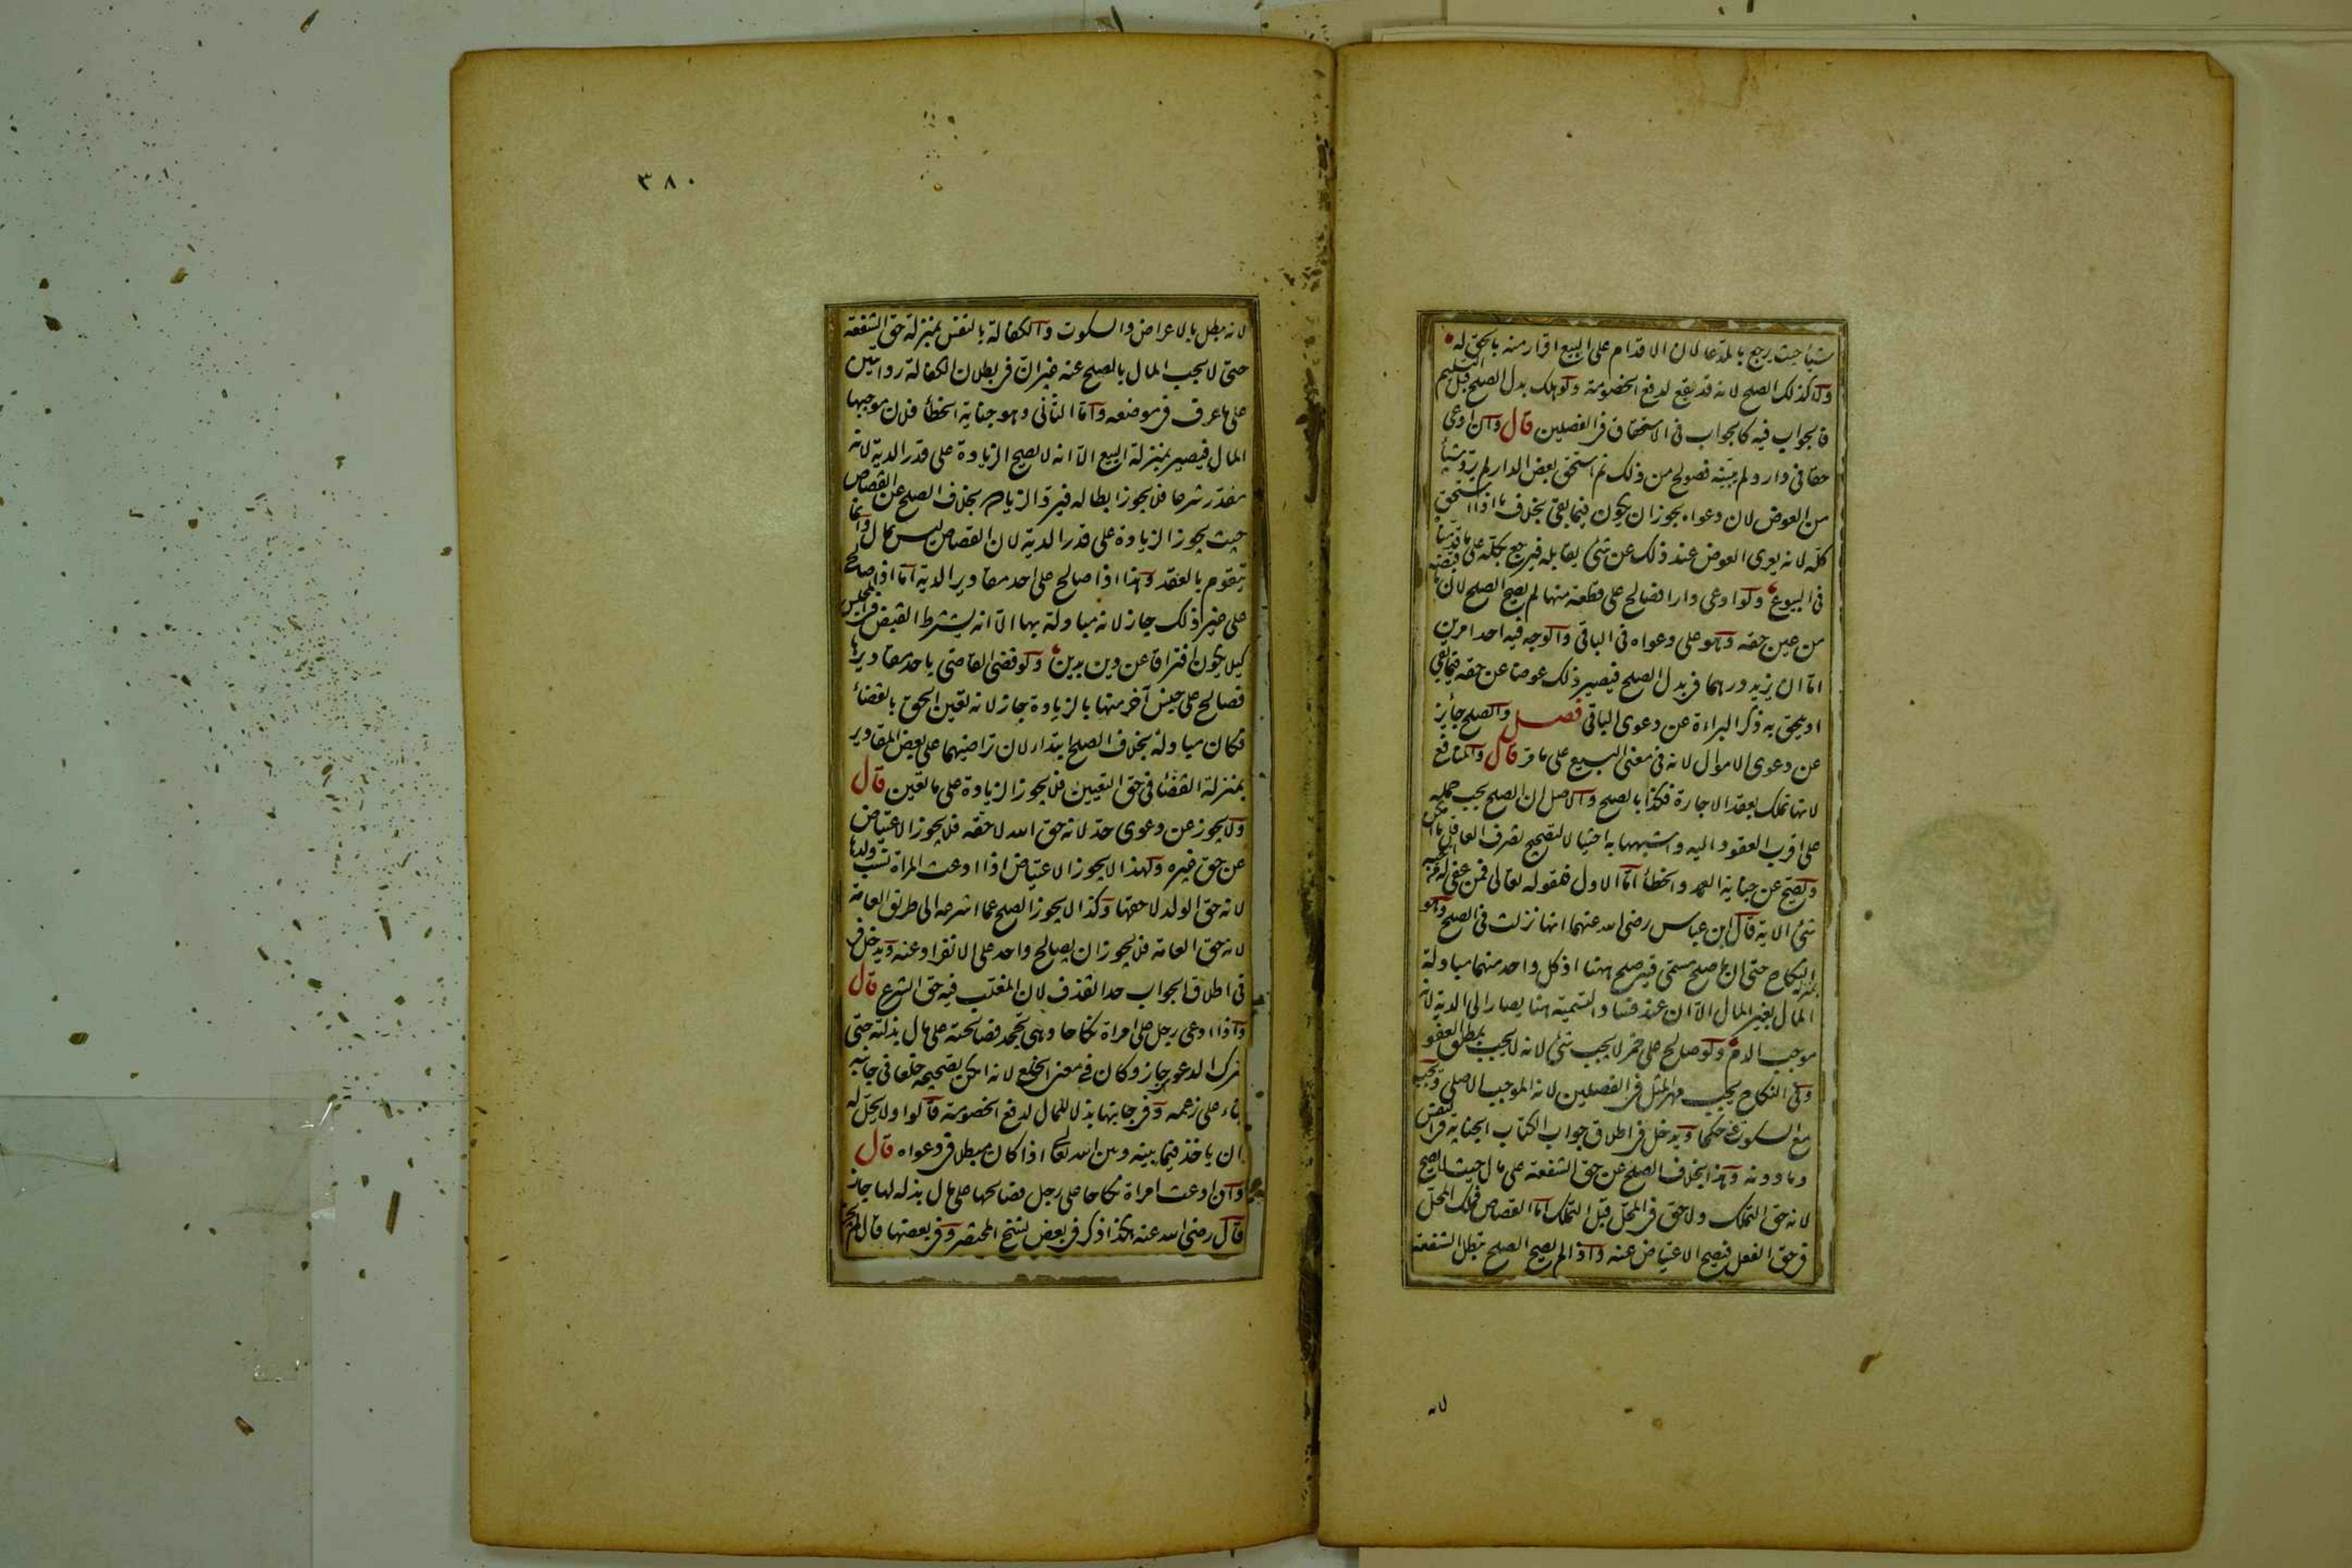 شيأ حيث يرجع بالمدعا لان الاقدام على البيع اقرار منه بالحق له
ولا كذلك الصلح لانه قد يقع لدفع الخصومة ولو هلك بدل الصلح قبل التسليم
فالجواب فيه كالجواب فى الاستحقاق فى الفصلين قال وان ادعى
حقا فى دار ولم يبينه فصولح من ذلك ثم استحق بعض الدار لم يرد شيأ
من العوض لان دعواه يجوز ان يكون فيما بقى بخلاف ما اذا استحق
كله لانه يعرى العوض عند ذلك عن شئ يقابله فيرجع بكله على ما قدمنا
فى البيوع ولو ادعى دارا فصالح على قطعة منها لم يصح الصلح لان ما قبضه
من عين حقه وهو على دعواه فى الباقى والوجه فيه احد امرين
اما ان يزيد درهما فى بدل الصلح فيصير ذلك عوضا عن حقه فيما بقى
او يلحق به ذكر البراءة عن دعوى الباقى فصل والصلح جائز
عن دعوى الاموال لانه فى معنى البيع على ما مر قال والمنافع
لانها تملك بعقد الاجارة فكذا بالصلح والاصل ان الصلح يجب حمله
على اقرب العقود اليه واشبهها به احتيالا لتصحيح تصرف العاقد ما امكن
ويصح عن جناية العمد والخطأ اما الاول فلقوله تعالى فمن عفى له من اخيه
شئ الاية قال ابن عباس رضى الله عنهما انها نزلت فى الصلح وهو
بمنزلة النكاح حتى ان ما صلح مسمى فيه صلح ههنا اذ كل واحد منهما مبادلة
المال بغير المال الا ان عند فساد التسمية هنا يصار الى الدية لانه
موجب الدم ولو صالح على خمر لا يجب شئ لانه لا يجب بمطلق العفو
وفى النكاح يجب مهر المثل فى الفصلين لانه الموجب الاصلى ويجب
مع السكوت عنه حكما ويدخل فى اطلاق جواب الكتاب الجناية فى النفس
وما دونه وهذا بخلاف الصلح عن حق الشفعة على مال حيث لا يصح
لانه حق التملك ولا حق فى المحل قبل التملك اما القصاص فملك المحل
فى حق الفعل فيصح الاعتياض عنه واذا لم يصح الصلح تبطل الشفعة
لانه
٣٨٠
لانه تبطل بالاعراض والسكوت والكفالة بالنفس بمنزلة حق الشفعة
حتى لا يجب المال بالصلح عنه غير ان فى بطلان الكفالة روايتين
على ما عرف فى موضعه واما الثانى وهو جناية الخطأ فلان موجبها
المال فيصير بمنزلة البيع الا انه لا يصح الزيادة على قدر الدية لانه
مقدر شرعا فلا يجوز ابطاله فيرد الزيادة بخلاف الصلح عن القصاص
حيث يجوز الزيادة على قدر الدية لان القصاص ليس بمال وانما
يتقوم بالعقد وهذا اذا صالح على احد مقادير الدية اما اذا صالح
على غير ذلك جاز لانه مبادلة بها الا انه يشترط القبض فى المجلس
كيلا يكون افتراقا عن دين بدين ولو قضى القاضى باحد مقاديرها
فصالح على جنس آخر منها بالزيادة جاز لانه تعين الحق بالقضاء
فكان مبادلة بخلاف الصلح ابتداء لان تراضيهما على بعض المقادير
بمنزلة القضاء فى حق التعيين فلا يجوز الزيادة على ما تعين قال
ولا يجوز عن دعوى حد لانه حق الله لا حقه فلا يجوز الاعتياض
عن حق غيره ولهذا لا يجوز الاعتياض اذا ادعت المراة نسب ولدها
لانه حق الولد لا حقها وكذا لا يجوز الصلح عما اشرعه الى طريق العامة
لانه حق العامة فلا يجوز ان يصالح واحد على الانفراد عنه ويدخل فى
فى اطلاق الجواب حد القذف لان المغلب فيه حق الشرع قال
واذا ادعى رجل على امراة نكاحا وهى تجحد فصالحته على مال بذلته حتى
يترك الدعوى جاز وكان فى معنى الخلع لانه امكن تصحيحه خلعا فى جانبه
بناء على زعمه وفى جانبها بذلا للمال لدفع الخصومة قالوا ولا يحل له
ان ياخذ فيما بينه وبين الله تعالى اذا كان مبطلا فى دعواه قال
وان ادعت امراة نكاحا على رجل فصالحها على مال بذله لها جاز
قال رضى الله عنه هكذا ذكر فى بعض نسخ المختصر وفى بعضها قال لم يجز